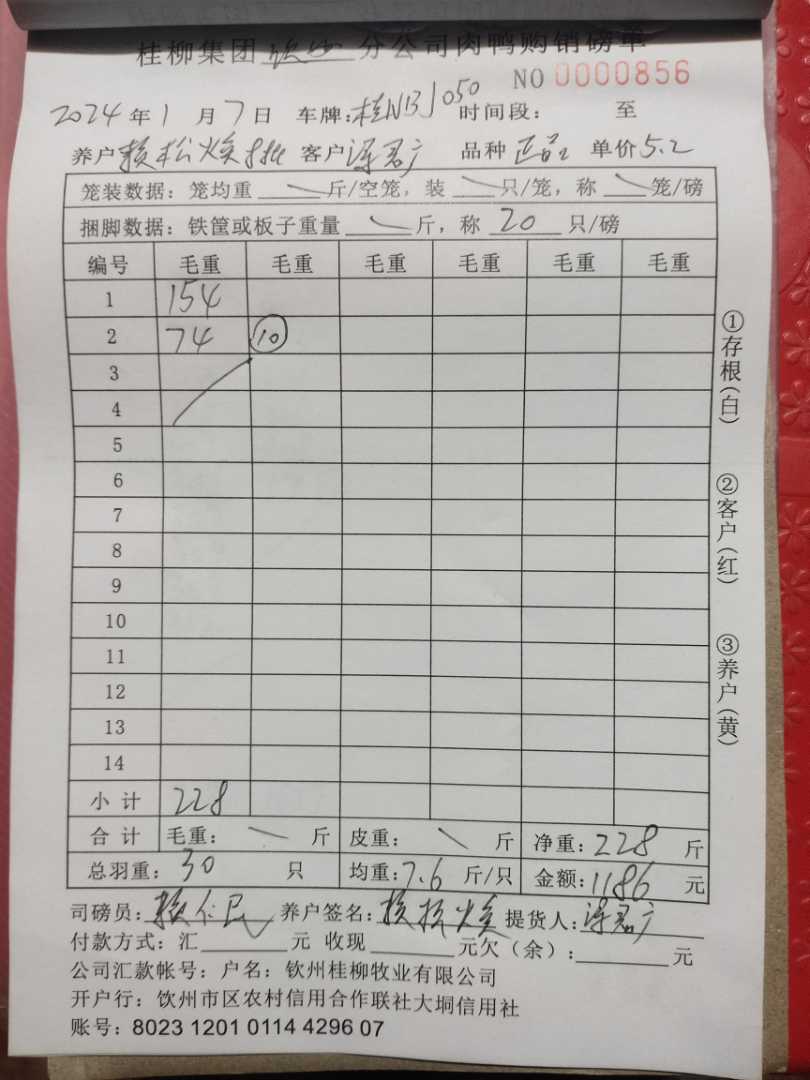 桂柳集团 钦州 分公司肉鸭购销磅单
NO 0000856
2024年1月7日 车牌:桂NBJ050 时间段: 至
养户 赖松焕批 客户 品种 正品2 单价5.2
笼装数据: 笼均重 斤/空笼, 装 只/笼, 称 笼/磅
捆脚数据: 铁筐或板子重量 斤, 称 20 只/磅
编号 毛重 毛重 毛重 毛重 毛重 毛重
1 154
2 74 10
3
4
5
6
7
8
9
10
11
12
13
14
小计 228
合计 毛重: 斤 皮重: 斤 净重: 228 斤
总羽重: 30 只 均重: 7.6 斤/只 金额: 1186 元
①存根(白)
②客户(红)
③养户(黄)
司磅员: 赖仁民 养户签名: 赖松焕 提货人:
付款方式: 汇 元 收现 元欠(余): 元
公司汇款帐号: 户名: 钦州桂柳牧业有限公司
开户行: 钦州市区农村信用合作联社大垌信用社
账号: 8023 1201 0114 4296 07